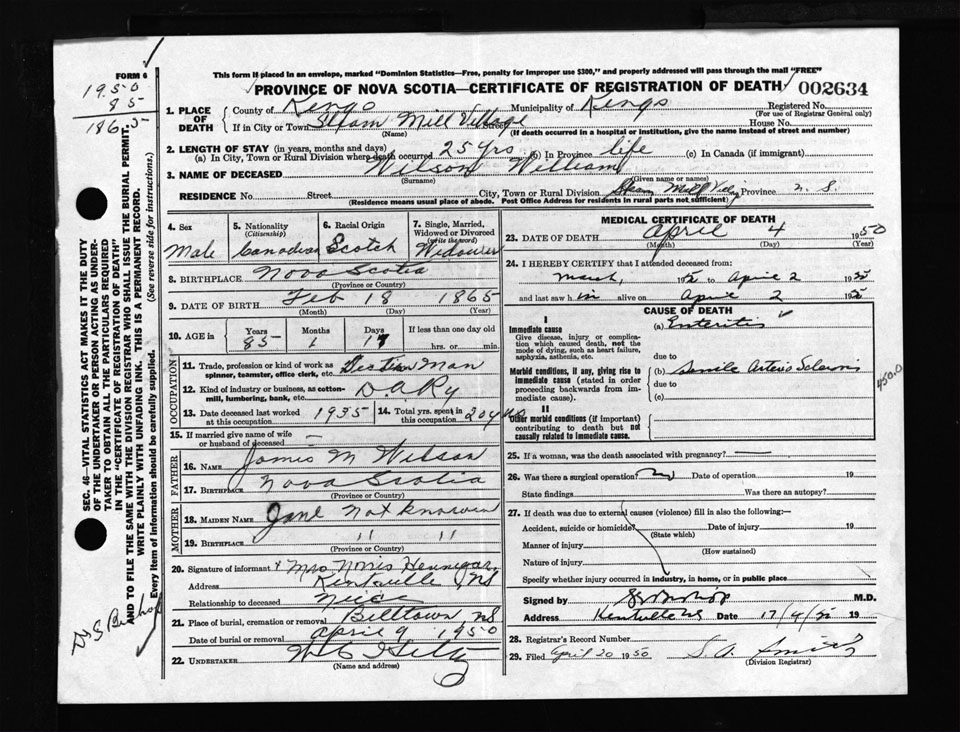 FORM 6
This form if placed in an envelope, marked "Dominion Statistics—Free, penalty for improper use $300," and properly addressed will pass through the mail "FREE"
PROVINCE OF NOVA SCOTIA—CERTIFICATE OF REGISTRATION OF DEATH 002634
1950
85
1865
1. PLACE OF DEATH County of Kings Municipality of Kings Registered No.
(For use of Registrar General only)
If in City or Town Steam Mill Village Street House No.
(Name) (If death occurred in a hospital or institution, give the name instead of street and number)
2. LENGTH OF STAY (in years, months and days)
(a) In City, Town or Rural Division where death occurred 25 yrs (b) In Province life (c) In Canada (if immigrant)
3. NAME OF DECEASED Wilson William
(Surname) (Given name or names)
RESIDENCE No. Street City, Town or Rural Division Steam Mill Vil, Province N.S.
(Residence means usual place of abode. Post Office Address for residents in rural parts not sufficient)
4. Sex Male
5. Nationality (Citizenship) Canadian
6. Racial Origin Scotch
7. Single, Married, Widowed or Divorced (write the word) Widower
8. BIRTHPLACE Nova Scotia
(Province or Country)
9. DATE OF BIRTH Feb 18 1865
(Month) (Day) (Year)
10. AGE in Years Months Days If less than one day old
85 1 17 hrs. or min.
OCCUPATION
11. Trade, profession or kind of work as spinner, teamster, office clerk, etc. Section Man
12. Kind of industry or business, as cotton-mill, lumbering, bank, etc. D.A.Ry
13. Date deceased last worked at this occupation 1935 14. Total yrs. spent in this occupation 20 yrs
15. If married give name of wife or husband of deceased —
FATHER
16. NAME James M Wilson
17. BIRTHPLACE Nova Scotia
(Province or Country)
MOTHER
18. MAIDEN NAME Jane Not known
19. BIRTHPLACE " "
(Province or Country)
20. Signature of informant x Mrs Norris Hennigar
Address Kentville NS
Relationship to deceased Neice
21. Place of burial, cremation or removal Billtown NS
Date of burial or removal April 9 1950
22. UNDERTAKER
(Name and address)
MEDICAL CERTIFICATE OF DEATH
23. DATE OF DEATH April 4 1950
(Month) (Day) (Year)
24. I HEREBY CERTIFY that I attended deceased from:
March, 1950 to April 2 1950
and last saw him alive on April 2 1950
CAUSE OF DEATH
I
Immediate cause (a) Enteritis
Give disease, injury or complication which caused death, not the mode of dying, such as heart failure, asphyxia, asthenia, etc.
due to
Morbid conditions, if any, giving rise to immediate cause (stated in order proceeding backwards from immediate cause). (b) Senile Arterio Sclerosis
due to
(c)
450.0
II
Other morbid conditions (if important) contributing to death but not causally related to immediate cause.
25. If a woman, was the death associated with pregnancy? —
26. Was there a surgical operation? Date of operation 19
State findings Was there an autopsy?
27. If death was due to external causes (violence) fill in also the following:—
Accident, suicide or homicide? Date of injury 19
(State which)
Manner of injury
(How sustained)
Nature of injury
Specify whether injury occurred in industry, in home, or in public place
Signed by M.D.
Address Kentville NS Date 17/4/50 19
28. Registrar's Record Number
29. Filed April 20 1950 S. A. Smith
(Division Registrar)
SEC. 46—VITAL STATISTICS ACT MAKES IT THE DUTY
OF THE UNDERTAKER OR PERSON ACTING AS UNDER-
TAKER TO OBTAIN ALL THE PARTICULARS REQUIRED
IN THE "CERTIFICATE OF REGISTRATION OF DEATH"
AND TO FILE THE SAME WITH THE DIVISION REGISTRAR WHO SHALL ISSUE THE BURIAL PERMIT.
WRITE PLAINLY WITH UNFADING INK. THIS IS A PERMANENT RECORD.
Every item of information should be carefully supplied. (See reverse side for instructions.)
Bishop